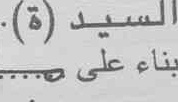 السيد (ة).
بناء على .....